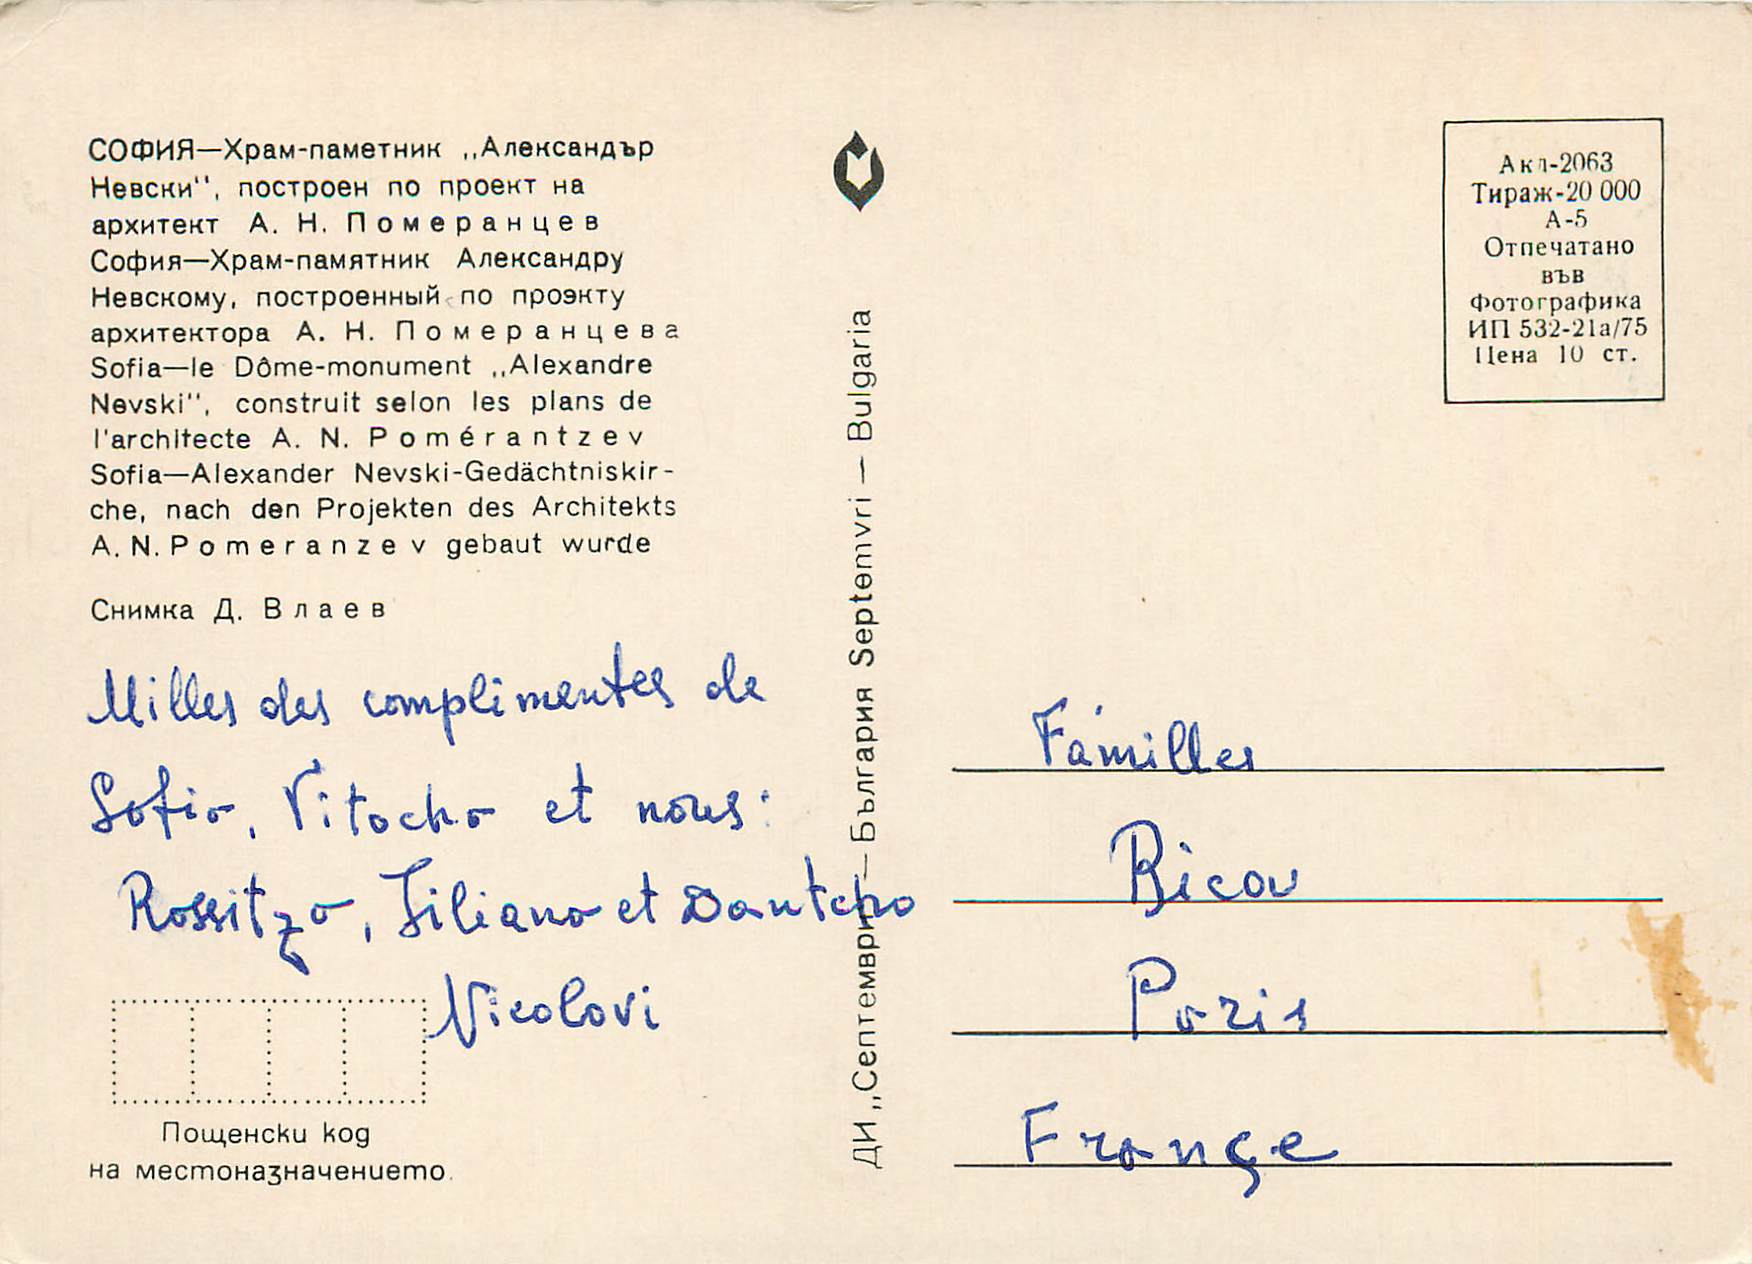 СОФИЯ—Храм-паметник „Александър
Невски'', построен по проект на
архитект А. Н. Померанцев
София—Храм-памятник Александру
Невскому, построенный по проэкту
архитектора А. Н. Померанцева
Sofia—le Dôme-monument „Alexandre
Nevski'', construit selon les plans de
l'architecte A. N. Pomérantzev
Sofia—Alexander Nevski-Gedächtniskir-
che, nach den Projekten des Architekts
A. N. Pomeranzev gebaut wurde
Снимка Д. Влаев
Milles des complimentes de
Sofia, Vitocha et nous:
Rossitza, Liliana et Dantcho
Nicolovi
Пощенски код
на местоназначението.
ДИ „Септември—България Septemvri — Bulgaria
Акл-2063
Тираж-20 000
А-5
Отпечатано
във
Фотографика
ИП 532-21а/75
Цена 10 ст.
Familles
Ricou
Paris
Françe